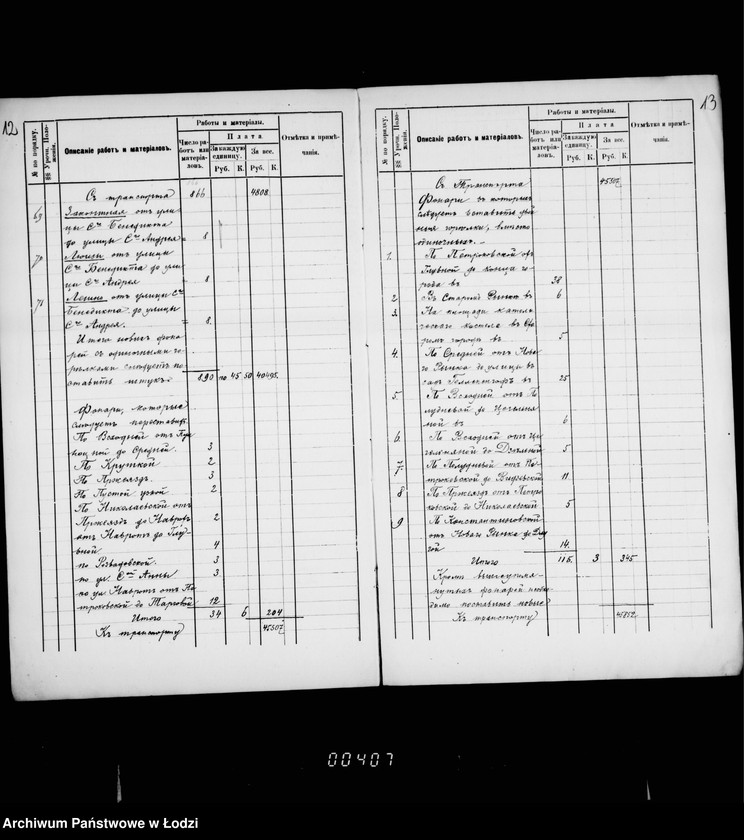 12
№ по порядку.
§§ Урочн. Поло-
женія.
Описаніе работъ и матеріаловъ.
Работы и матеріалы.
Число ра-
ботъ или
матеріа-
ловъ.
Плата
За каждую
единицу.
За все.
Руб. К. Руб. К.
Отмѣтка и примѣ-
чанія.
Съ транспорта 866 4808
69 Законтная отъ ули-
цы Св. Бенедикта
до улицы Св. Андрея= 8
70 отъ улицы
Св. Бенедикта до ули-
цы Св. Андрея = 8
71 отъ улицы Св.
Бенедикта до улицы
Св. Андрея. = 8.
Итого новыхъ фона-
рей съ одиночными го-
рѣлками слѣдуетъ по-
ставить штукъ 890 по 45 50 40495
Фонари, которые
слѣдуетъ переставить.
По Восходной отъ
ной до Средней. 3
По Круткой 2
По Проѣздъ. 3
По Пустой узкой 2
По Николаевской отъ
Проѣздъ до Навротъ 2
отъ Навротъ до Глу-
вной 4
по Розвадовской. 3
по ул. Св. Анны 3
по ул. Навротъ отъ Пе-
троковской до Тарговой 12
Итого 34 6 204
Къ транспорту 45507
13
№ по порядку.
§§ Урочн. Поло-
женія.
Описаніе работъ и матеріаловъ.
Работы и матеріалы.
Число ра-
ботъ или
матеріа-
ловъ.
Плата
За каждую
единицу.
За все.
Руб. К. Руб. К.
Отмѣтка и примѣ-
чанія.
Съ Транспорта 45507
Фонари въ которые
слѣдуетъ вставить двой-
ныя горѣлки, вмѣсто
одиночныхъ.-
1. По Петроковской отъ
Главной до конца го-
рода въ 38
2 Въ Старый Рынокъ въ 6
3. На площади католи-
ческаго костела въ Ста-
ромъ городѣ въ 5
4. По Средней отъ Нова-
го Рынка до улицы въ
садъ въ 25
5. По Восходной отъ По-
лудневой до Цегельня-
ной въ 6
6. По Восходной отъ Це-
гельняной до Дзельной 5
7. По Полудневой отъ Пе-
троковской до Видзевской 11
8 По Проѣздъ отъ Петро-
ковской до Николаевской 5
9 По Константиновской
отъ Новаго Рынка до Длу-
гой 14.
Итого 115. 3 345
Кромѣ вышеупомя-
нутыхъ фонарей необхо-
димо поставить новые
Къ транспорту 45852
00407
Archiwum Państwowe w Łodzi